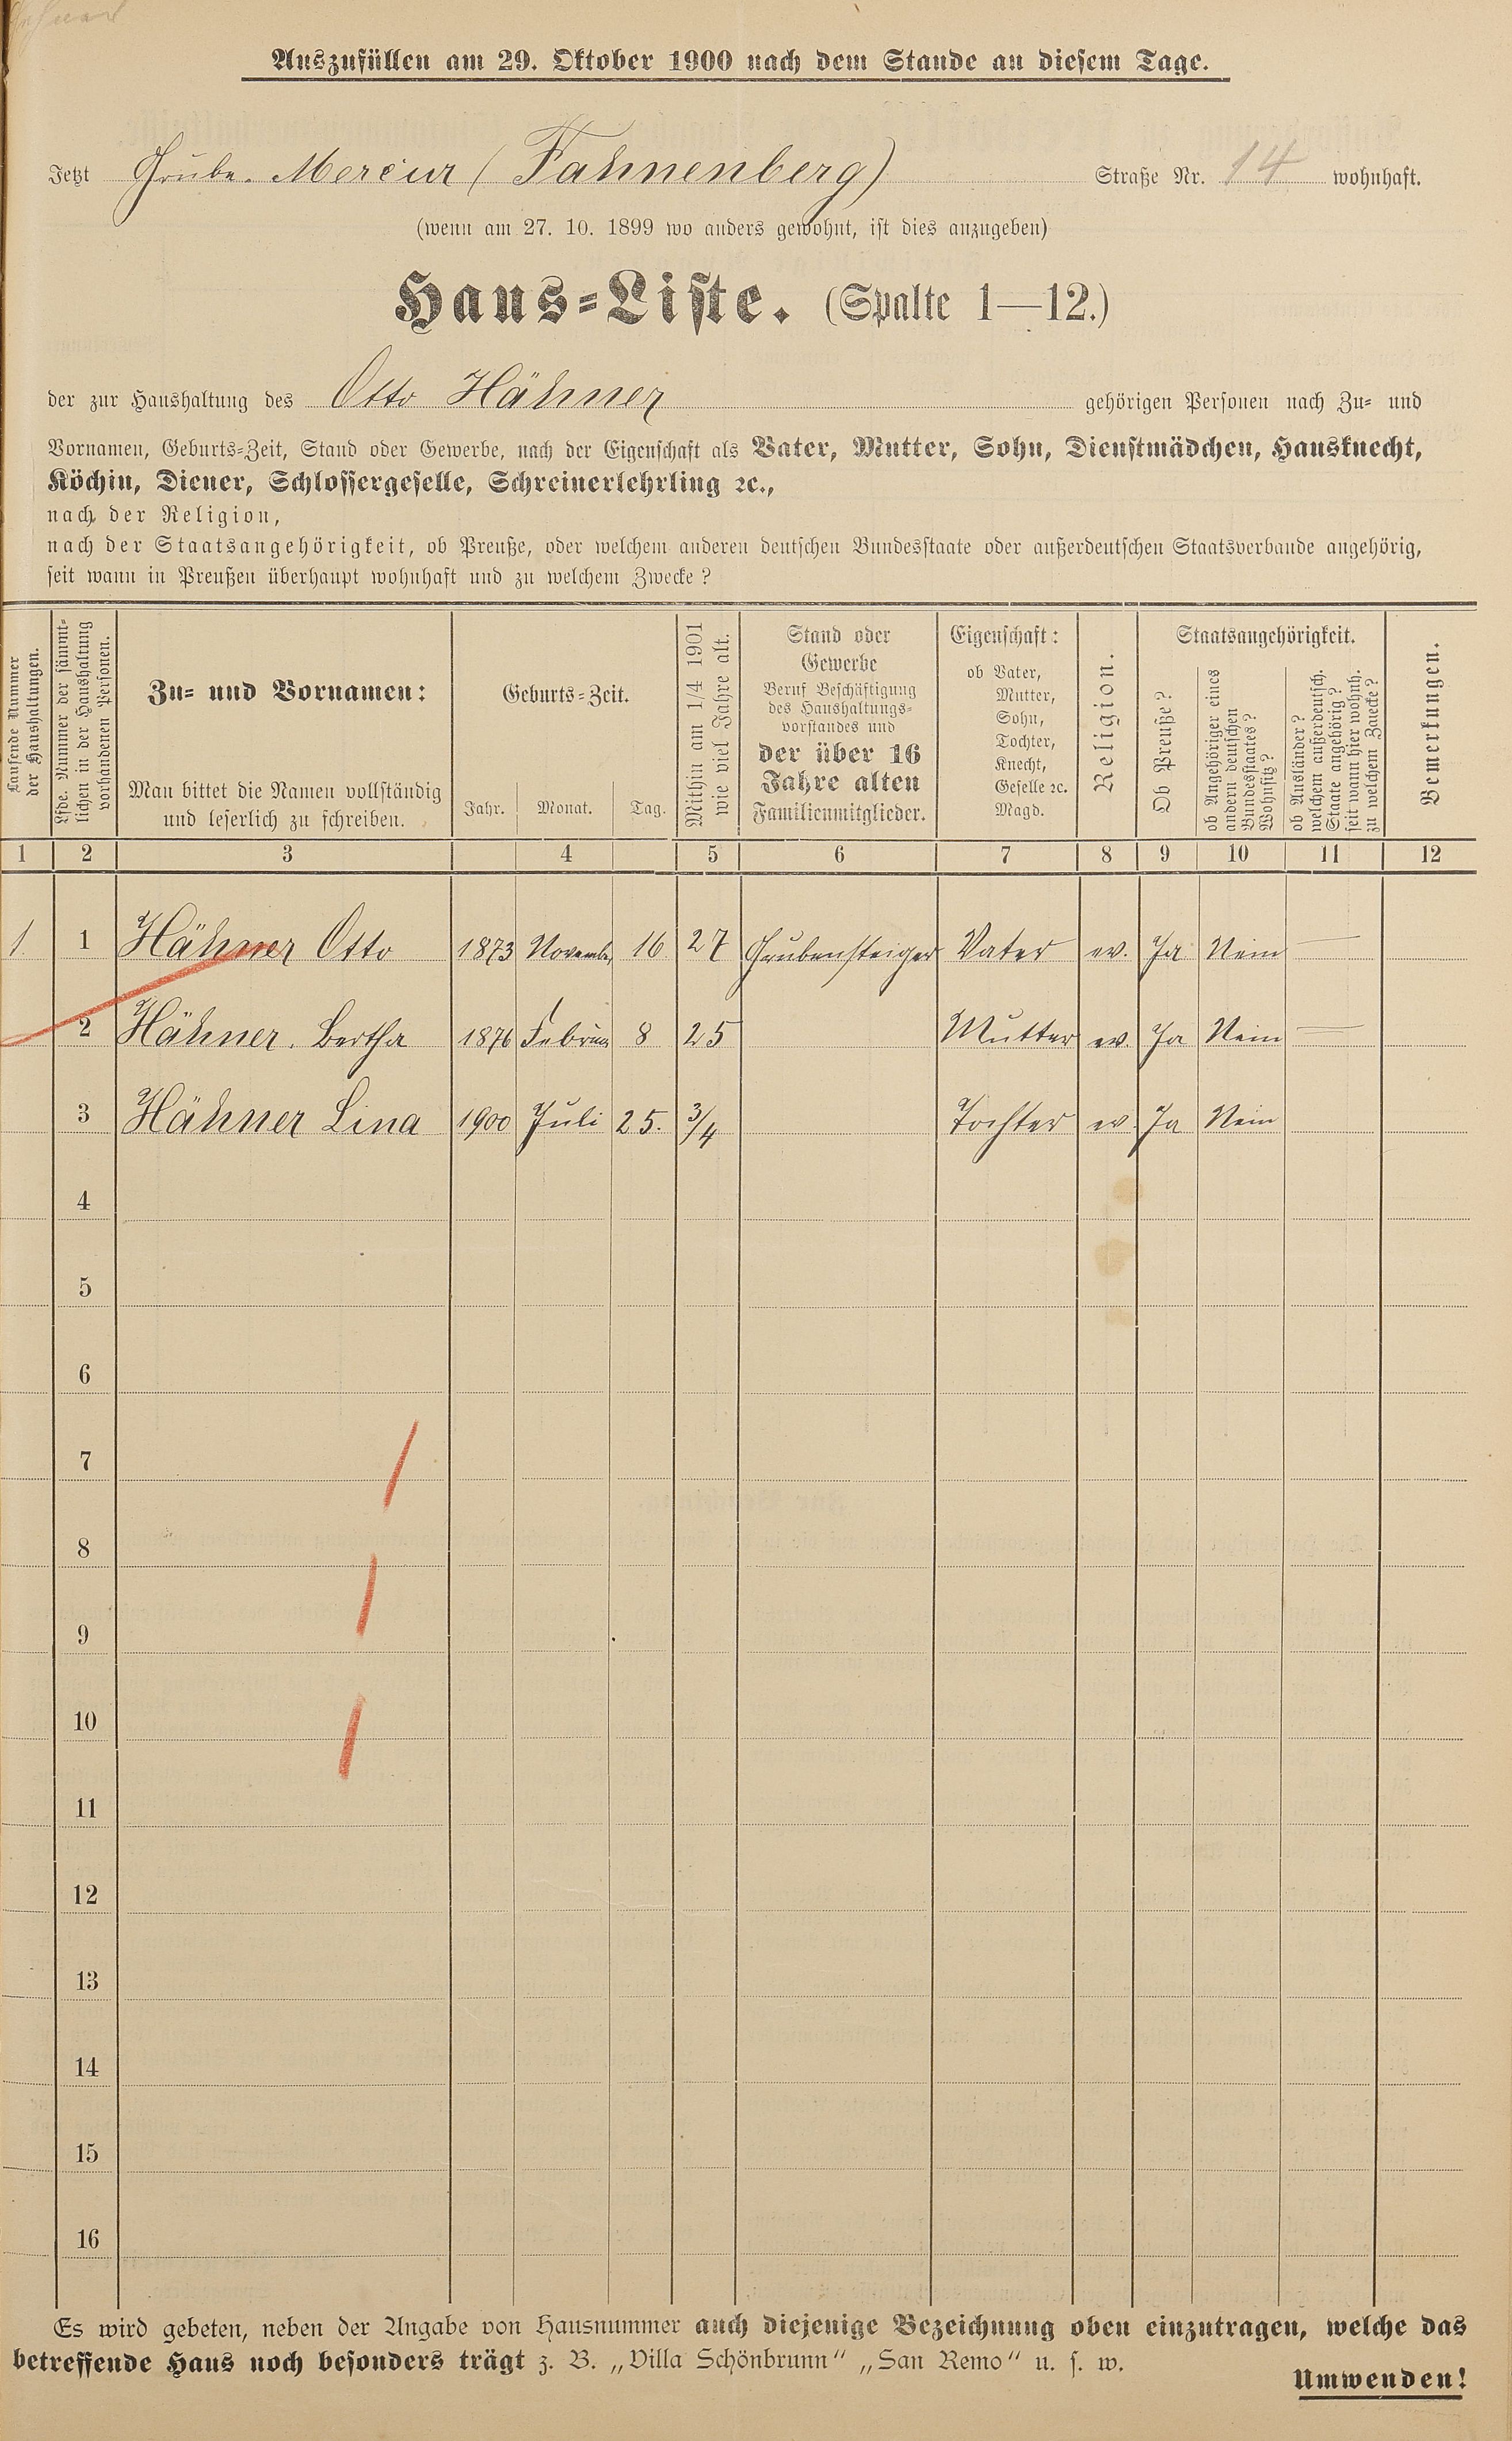 Auszufüllen am 29. Oktober 1900 nach dem Stande an diesem Tage.
Jetzt Grube. Mercur (Fahnenberg) Straße Nr. 14 wohnhaft.
(wenn am 27. 10. 1899 wo anders gewohnt, ist dies anzugeben)
Haus-Liste. (Spalte 1—12.)
der zur Haushaltung des Otto Hähner gehörigen Personen nach Zu- und
Vornamen, Geburts-Zeit, Stand oder Gewerbe, nach der Eigenschaft als Vater, Mutter, Sohn, Dienstmädchen, Hausknecht,
Köchin, Diener, Schlossergeselle, Schreinerlehrling ꝛc.,
nach der Religion,
nach der Staatsangehörigkeit, ob Preuße, oder welchem anderen deutschen Bundesstaate oder außerdeutschen Staatsverbande angehörig,
seit wann in Preußen überhaupt wohnhaft und zu welchem Zwecke?
Laufende Nummer
der Haushaltungen.
Lfde. Nummer der sämmt-
lichen in der Haushaltung
vorhandenen Personen.
Zu- und Vornamen:
Man bittet die Namen vollständig
und leserlich zu schreiben.
Geburts-Zeit.
Jahr. Monat. Tag.
Mithin am 1/4 1901
wie viel Jahre alt.
Stand oder
Gewerbe
Beruf Beschäftigung
des Haushaltungs-
vorstandes und
der über 16
Jahre alten
Familienmitglieder.
Eigenschaft:
ob Vater,
Mutter,
Sohn,
Tochter,
Knecht,
Geselle ꝛc.
Magd.
Religion.
Staatsangehörigkeit.
Ob Preuße?
ob Angehöriger eines
andern deutschen
Bundesstaates?
Wohnsitz?
ob Ausländer?
welchem außerdeutsch.
Staate angehörig?
seit wann hier wohnh.
zu welchem Zwecke?
Bemerkungen.
1 2 3 4 5 6 7 8 9 10 11 12
1. 1 Hähner Otto 1873 Novembr 16. 27 Grubensteiger Vater ev. Ja Nein —
2 Hähner. Bertha 1876 Februar 8 25 Mutter ev. Ja Nein —
3 Hähner Lina 1900 Juli 25. 3/4 Tochter ev. Ja Nein
4
5
6
7
8
9
10
11
12
13
14
15
16
Es wird gebeten, neben der Angabe von Hausnummer auch diejenige Bezeichnung oben einzutragen, welche das
betreffende Haus noch besonders trägt z. B. „Villa Schönbrunn“ „San Remo“ u. s. w.
Umwenden!